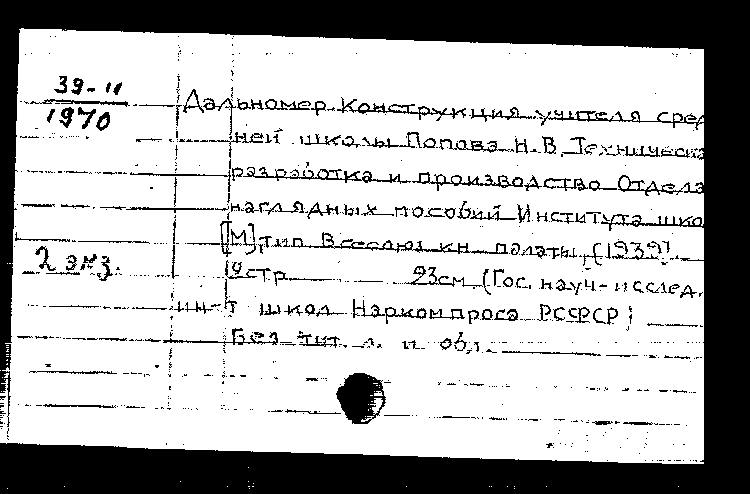 39-11
1970
Дальномер. Конструкция учителя сред
ней школы Попова Н.В. Техническа
разработка и производство Отдела
наглядных пособий Института шко
[М], тип. Всесоюз. кн. палаты, [1939].
стр. 23см. (Гос. науч-исслед.
2 экз.
ин-т школ Наркомпроса РСФСР)
Без тит. л. и обл.